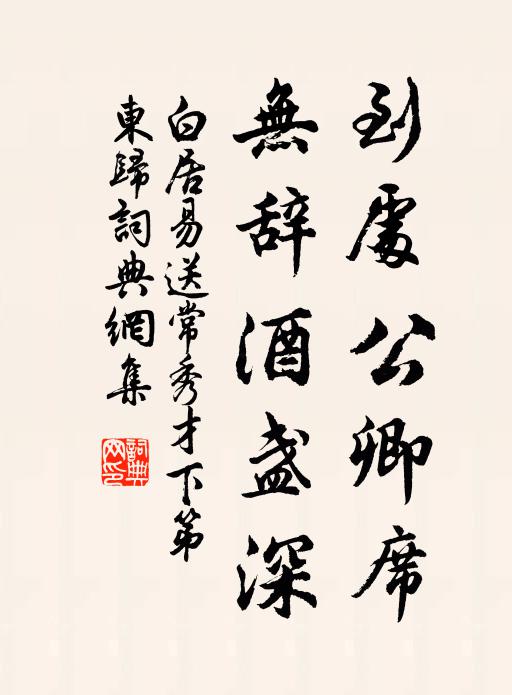 到處公卿席
無辞酒盏深
白居易送常秀才下第
東歸詞典網集
詞典网印